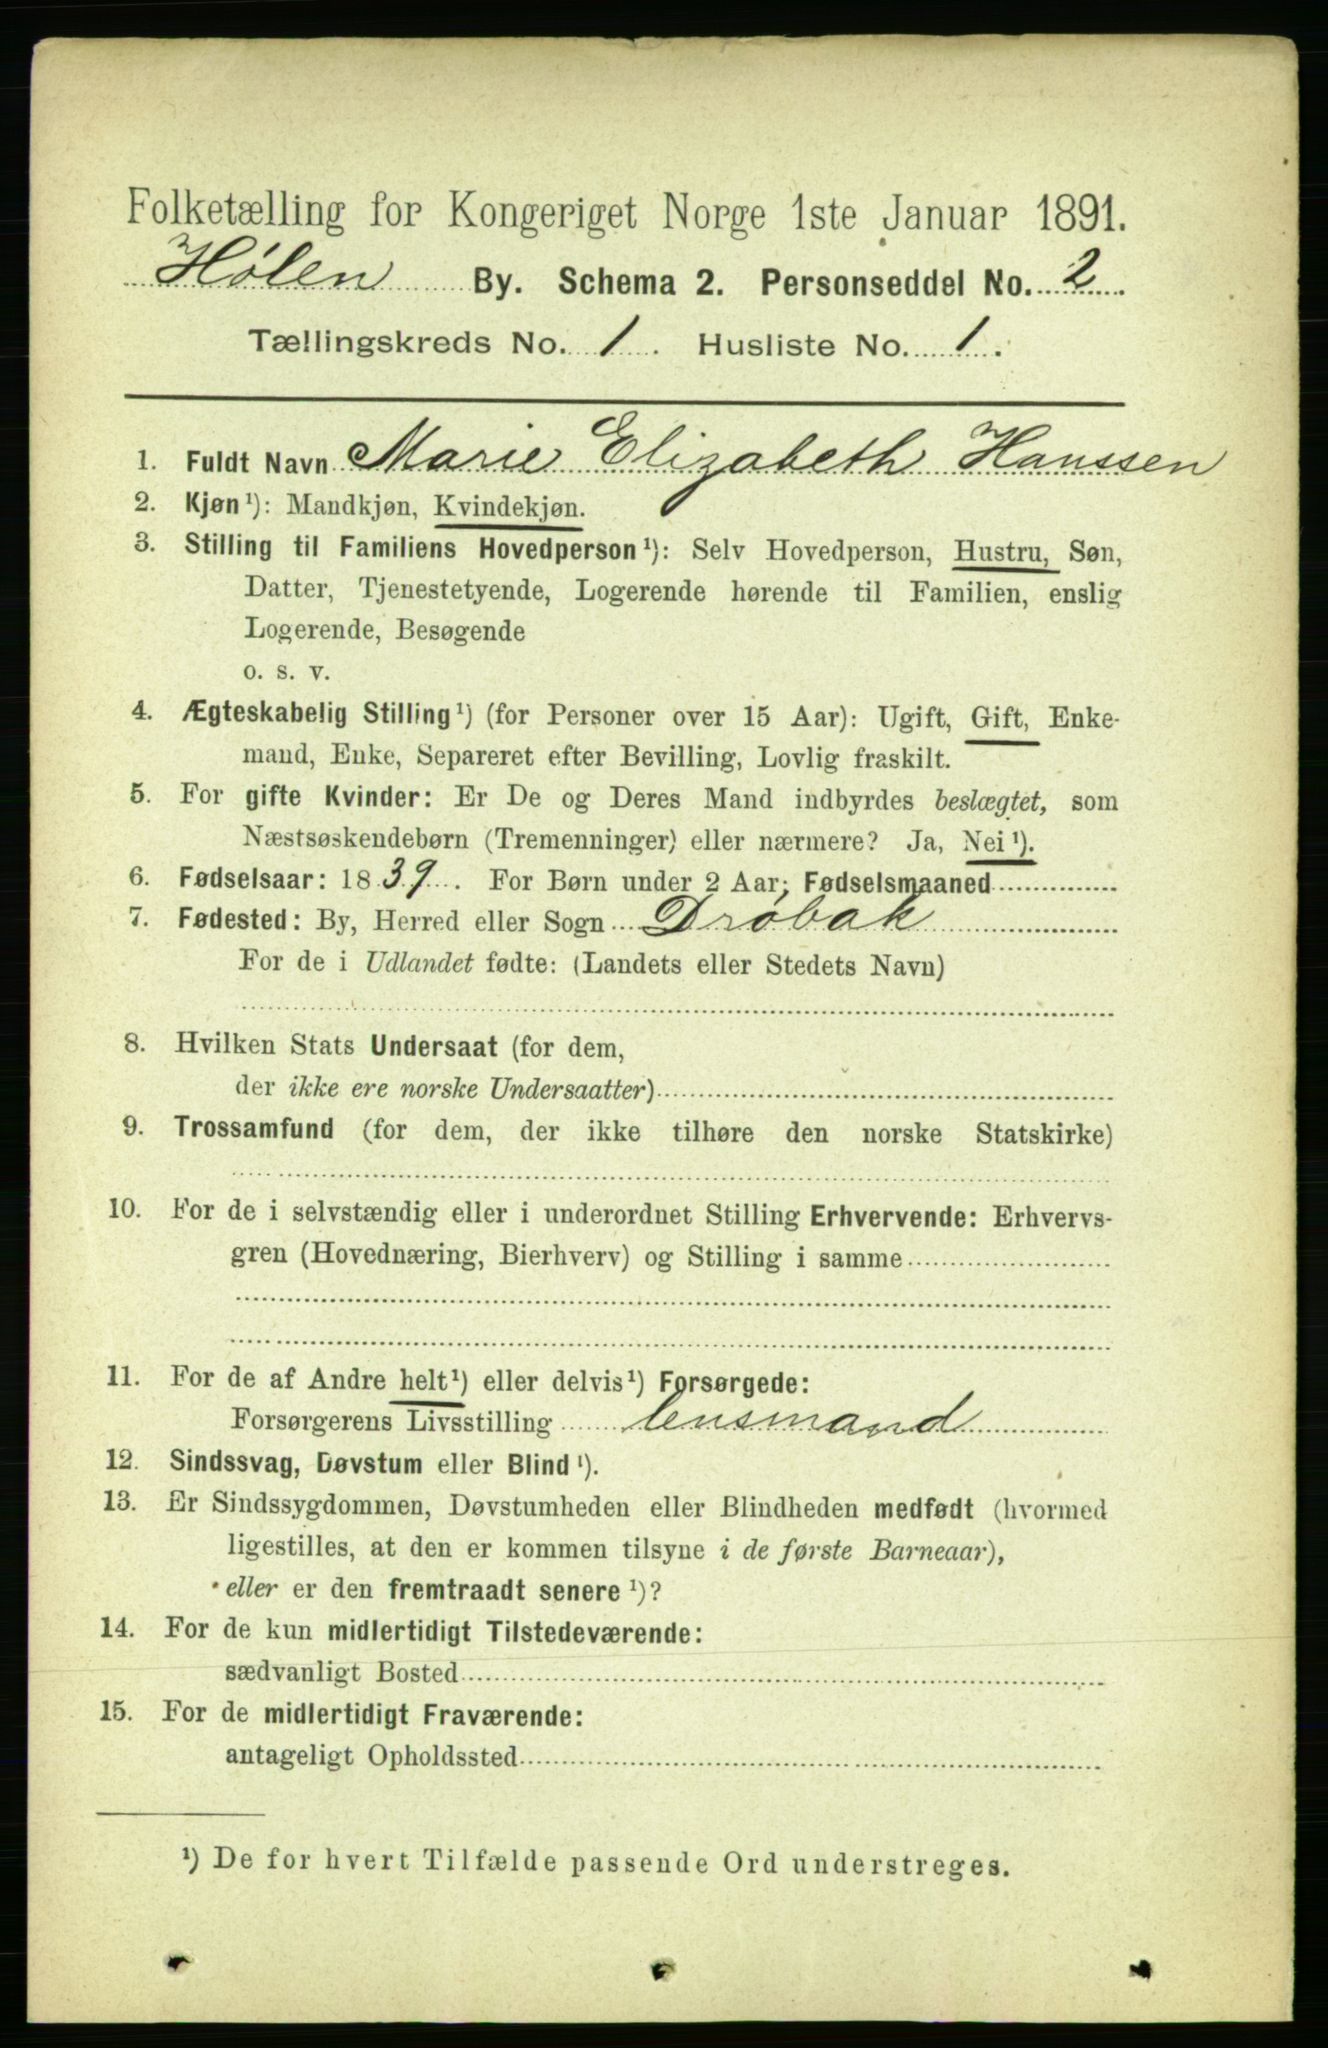 Folketælling for Kongeriget Norge 1ste Januar 1891.
Hølen By. Schema 2. Personseddel No. 2
Tællingskreds No. 1. Husliste No. 1.
1. Fuldt Navn Marie Elizabeth Hanssen
2. Kjøn¹): Mandkjøn, Kvindekjøn.
3. Stilling til Familiens Hovedperson¹): Selv Hovedperson, Hustru, Søn,
Datter, Tjenestetyende, Logerende hørende til Familien, enslig
Logerende, Besøgende
o. s. v.
4. Ægteskabelig Stilling¹) (for Personer over 15 Aar): Ugift, Gift, Enke-
mand, Enke, Separeret efter Bevilling, Lovlig fraskilt.
5. For gifte Kvinder: Er De og Deres Mand indbyrdes beslægtet, som
Næstsøskendebørn (Tremenninger) eller nærmere? Ja, Nei¹).
6. Fødselsaar: 1839. For Børn under 2 Aar; Fødselsmaaned
7. Fødested: By, Herred eller Sogn Drøbak
For de i Udlandet fødte: (Landets eller Stedets Navn)
8. Hvilken Stats Undersaat (for dem,
der ikke ere norske Undersaatter)
9. Trossamfund (for dem, der ikke tilhøre den norske Statskirke)
10. For de i selvstændig eller i underordnet Stilling Erhvervende: Erhvervs-
gren (Hovednæring, Bierhverv) og Stilling i samme
11. For de af Andre helt¹) eller delvis¹) Forsørgede:
Forsørgerens Livsstilling lensmand
12. Sindssvag, Døvstum eller Blind¹).
13. Er Sindssygdommen, Døvstumheden eller Blindheden medfødt (hvormed
ligestilles, at den er kommen tilsyne i de første Barneaar),
eller er den fremtraadt senere¹)?
14. For de kun midlertidigt Tilstedeværende:
sædvanligt Bosted
15. For de midlertidigt Fraværende:
antageligt Opholdssted
¹) De for hvert Tilfælde passende Ord understreges.